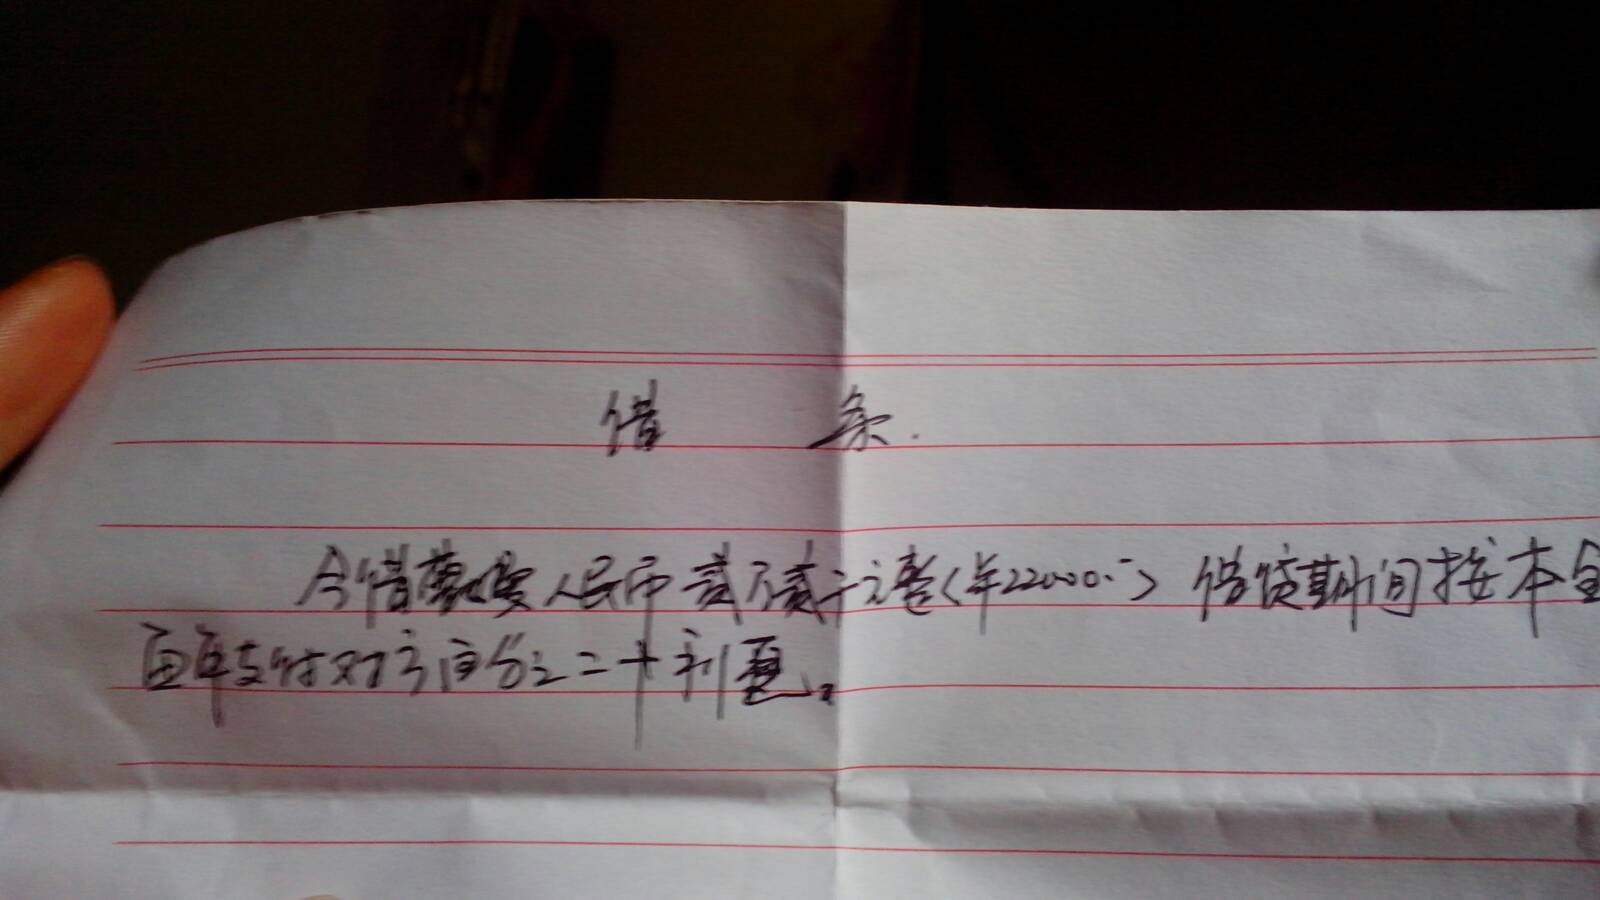 借 条.
今借 人民币贰万贰千元整(¥22000.-) 借贷期间按本金
每年支付对方百分之二十利息。